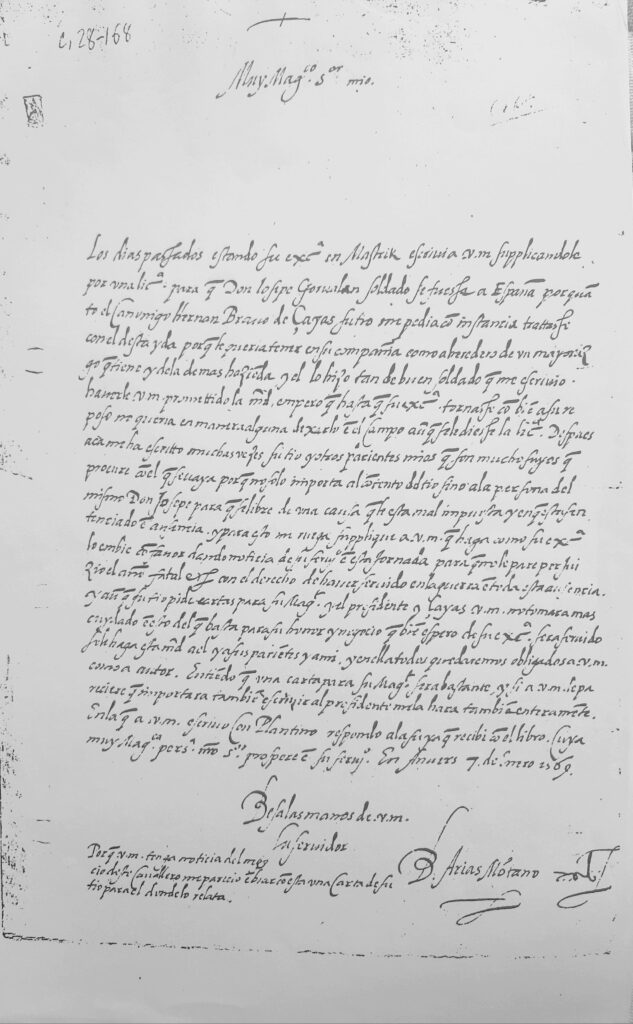 c, 28-168
Muy Mag.co S.or mio.
Los dias passados estando su exc.a en Mastrik escrivi a v.m. supplicandole
por una lic.a para q̃ Don Iosepe Gonsalan soldado se fuesse a España porquã
to el Canonigo Hernan Bravo de Çayas su tio me pedia cõ instancia trattasse
con el desta yda porq̃ le queria tener en su compañia como a heredero de un mayoraz
go q̃ tiene y de la demas hazieda y el lo hizo tan de buen soldado q̃ me escrivio
haverle v.m. promettido la md, empero q̃ hasta q̃ su exc.a tornasse cõ bie a su re
poso no queria en manera alguna dexarlo e el campo aũq̃ se le diesse la lic.a. Despues
aca me hã escritto muchas vezes su tio y otros parientes mios q̃ son mucho suyos q̃
procure cõel q̃ se vaya porq̃ no solo importa al contento del tio sino a la persona del
mismo Don Iosepe para q̃ se libre de una causa q̃ le esta mal impuesta y en q̃ esta sen
tenciado e ausencia, y para esto me ruega supplique a v.m. q̃ haga como su exc.a
lo embie dando noticia de su serv.o e esta jornada para q̃ no le pare perjui
zio el con el derecho de haver servido en la guerra e toda esta ausencia.
Y aũq̃ su tio pide cartas para su Mag.d y el presidente y Çayas v.m. no tomara mas
cuydado e esto del q̃ basta para su honor y negocio q̃ biẽ espero de su exc.a sera servido
se le haga esta md a el y a sus pariẽtes y a mi, y en ella todos quedaremos obligados a v.m.
como a autor. Entiẽdo q̃ una carta para su Mag.d sera bastante, y si a v.m. le pa
reciere q̃ importara tambiẽ escrivir al presidente md la hara tambiẽ enteramẽte.
En la q̃ a v.m. escrivo con Plantino respondo a la suya q̃ recibi cõ el libro. Cuya
muy Mag.ca pers.a nr̃o S.or prospere e su serv.o. En Anvers 7. de Enero 1569.
Besa las manos de v.m.
su servidor
B. Arias Mõtano
Porq̃ v.m. tenga noticia del nego
cio deste cavallero me parecio ẽbiar cõ esta una Carta de su
tio para el donde lo relata.